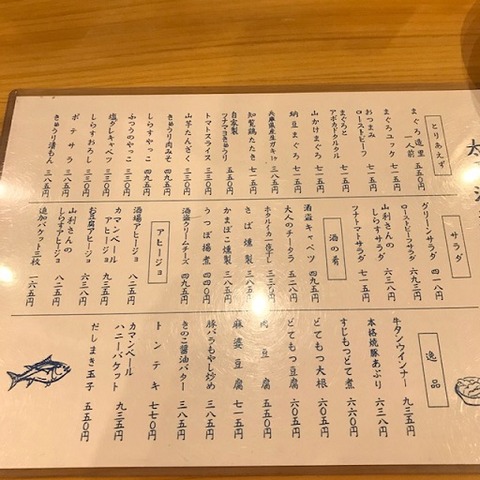 とりあえず
まぐろ造里 一人前 五五〇円
まぐろユッケ 七一五円
おつまみローストビーフ 七一五円
まぐろとアボカドタルタル 七一五円
山かけまぐろ 七一五円
納豆まぐろ 七一五円
兵庫県産生ガキ1ヶ 三八五円
知覧鶏たたき 七一五円
自家製ツナマヨきゅうり 五五〇円
トマトスライス 三三〇円
山芋たんざく 三三〇円
きゅうり肉みそ 四九五円
しらすやっこ 四九五円
ふつうのやっこ 三三〇円
塩ダレキャベツ 三八五円
しらすおろし 三三〇円
ポテサラ 三八五円
きゅうり漬もん 三八五円
サラダ
グリーンサラダ 四一八円
ローストビーフサラダ 九三五円
山利さんのしらすサラダ 六三八円
フチトマトサラダ 七一五円
酒の肴
酒盗キャベツ 四九五円
大人のチータラ 五二八円
ホタルイカ一夜干し 三三〇円
さば燻製 三八五円
かまぼこ燻製 三八五円
うつぼ揚煮 六〇五円
酒盗クリームチーズ 四九五円
アヒージョ
酒場アヒージョ 八二五円
カマンベールアヒージョ 九三五円
お豆腐アヒージョ 八二五円
山利さんのしらすアヒージョ 八二五円
追加バケット三枚 一六五円
逸品
牛タンウインナー 九三五円
本格焼豚あぶり 六三八円
すじもつとて煮 六六〇円
とてもつ大根 六〇五円
とてもつ豆腐 六〇五円
肉豆腐 六〇五円
麻婆豆腐
豚バラもやし炒め 六三八円
きのこ醤油バター 三八五円
トンテキ 七七〇円
カマンベールハニーバケット 九三五円
だしまき玉子 五五〇円